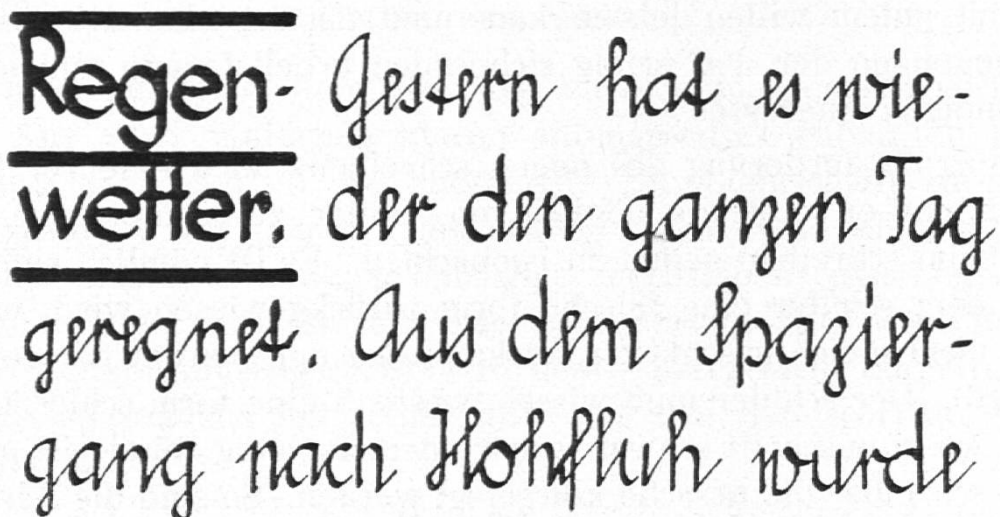 Regen- Gestern hat es wie-
wetter. der den ganzen Tag
geregnet. Aus dem Spazier-
gang nach Hohfluh wurde